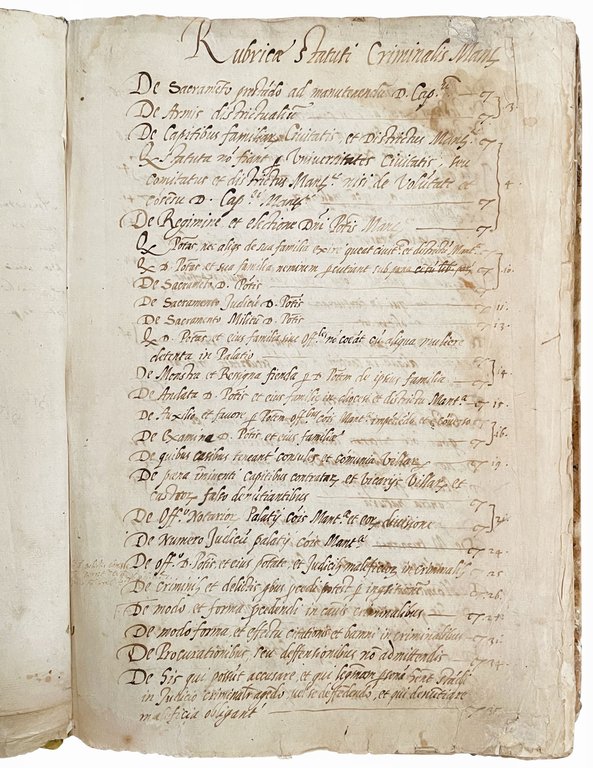 Rubricæ Statuti Criminalis Mant
De Sacramto prestādo ad manutenendū D. Capm
De Armis districtualiū 3.
De Capitibus familiar Civitatis et Districtus Mant
Q Statuta nō fiant p Universitates Civitatis, seu
comitatus et districtus Mante nisi de Volūtate et 4.
cōsēsu D. Cape Mante
De Regimine et electione Dni Potis Mant
Q Potas nec aliqs de sua familia exire queat civite et districtū Mant
Q D. Potas et sua familia neminem percutiant sub pena 10.
De Sacramēto D. Potis
De Sacramento Judicū D. Potis 11.
De Sacramento Militū D. Potis 13.
Q D. Potas et eius familia sive Offles nō coeāt cū aliqua muliere
detenta in Palatio
De Monstra et Resigna fienda p D. Potem de ipsius familia 14.
De Ambata D. Potis et eius familie in diocesi et districtu Mante 15.
De Auxilio et favore p Potem offbus cōis Mante impēdēdo et ecōverso
De Examina D. Potis et eius familiæ 16.
De quibus casibus teneant consules et comunia Villar 19.
De pena imminenti Capitibus contratar et Vicarys Villar et
custodr falso denūtiantibus
De Offo Notarior Palaty cōis Mante et eor divisione
De Numero Judicū palaty cōis Mante 24.
De offo D. Potis et eius potate et Judicis maleficior in criminalib 25
De Criminib et delictis qbus pcedi potest p inquisitionē 26.
De modo et forma pcedendi in causis criminalibus
De modo, forma, et effectu citationis et banni in criminalibus 31.
De Procurationibus, seu deffensionibus nō admittendis 34.
De his qui possūt accusare, et qui legitimam personā hēnt standi
in Judicio criminali agēdo vel se deffedēdo, et qui denūtiare
maleficia obligant 35.